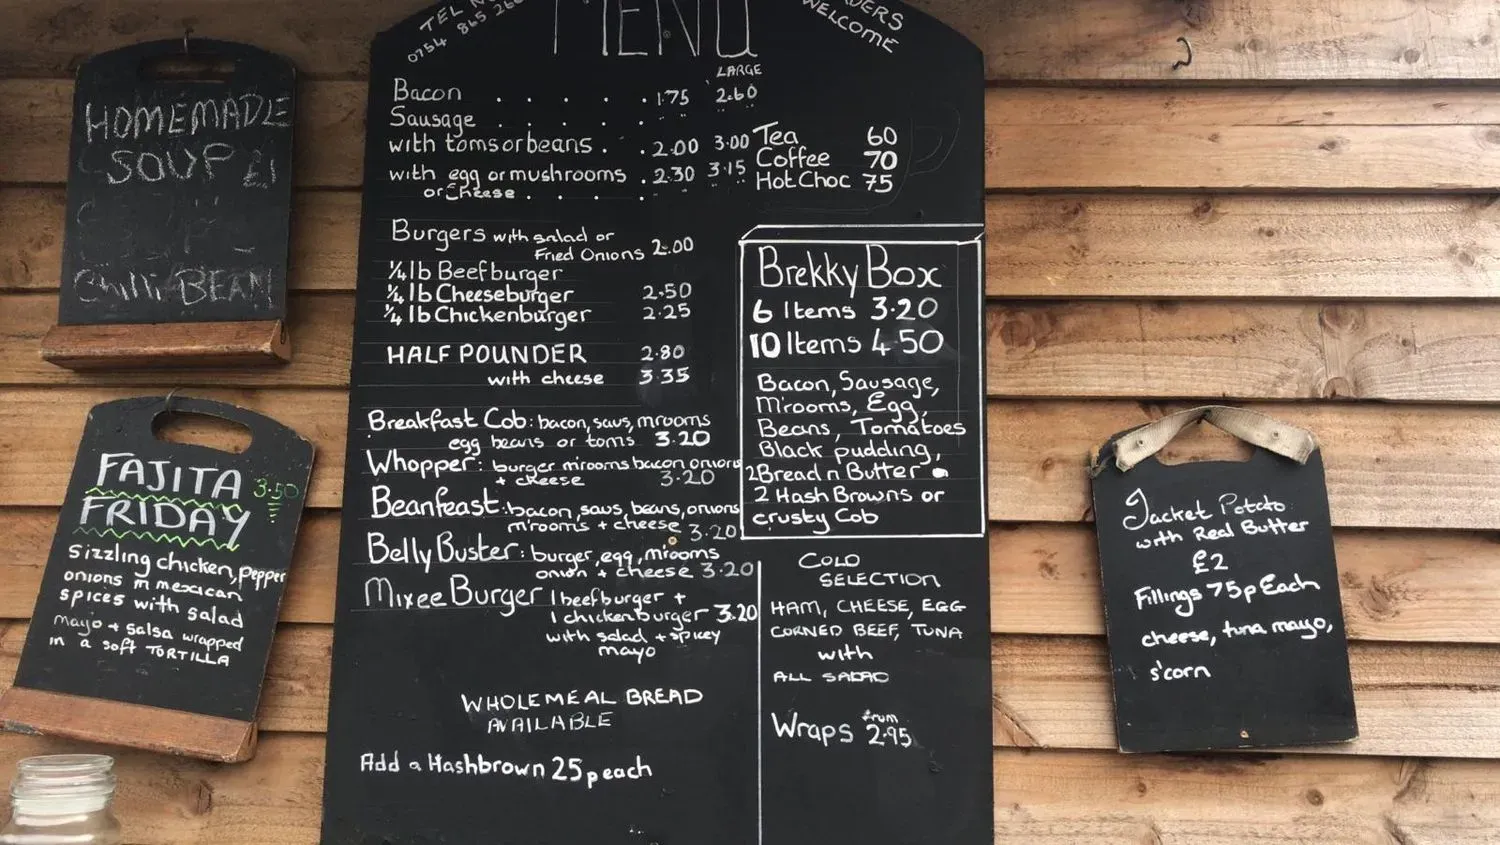 HOMEMADE
SOUP £1
Chilli BEAN
FAJITA 3.50
FRIDAY
Sizzling chicken, pepper
onions in mexican
spices with salad
mayo + salsa wrapped
in a soft TORTILLA
TEL
0754 865
WELCOME
MENU
LARGE
Bacon . . . . . 1.75 2.60
Sausage . . . . . " " " "
with toms or beans . . 2.00 3.00
with egg or mushrooms . 2.30 3.15
or Cheese . . . . " " " "
Tea 60
Coffee 70
Hot Choc 75
Burgers with salad or
Fried Onions 2.00
1/4 lb Beefburger
1/4 lb Cheeseburger 2.50
1/4 lb Chickenburger 2.25
HALF POUNDER 2.80
with cheese 3.35
Breakfast Cob: bacon, saus, mrooms
egg beans or toms 3.20
Whopper: burger mrooms bacon onions
+ cheese 3.20
Beanfeast: bacon, saus, beans, onions
m'rooms + cheese 3.20
Belly Buster: burger, egg, mrooms
onion + cheese 3.20
Mixee Burger 1 beefburger +
1 chickenburger 3.20
with salad + spicey
mayo
WHOLEMEAL BREAD
AVAILABLE
Add a Hashbrown 25p each
Brekky Box
6 Items 3.20
10 Items 4.50
Bacon, Sausage,
M'rooms, Egg,
Beans, Tomatoes
Black pudding,
2 Bread n' Butter
2 Hash Browns or
crusty Cob
COLD
SELECTION
HAM, CHEESE, EGG
CORNED BEEF, TUNA
with
ALL SALAD
Wraps from 2.95
Jacket Potato
with Real Butter
£2
Fillings 75p Each
cheese, tuna mayo,
s'corn